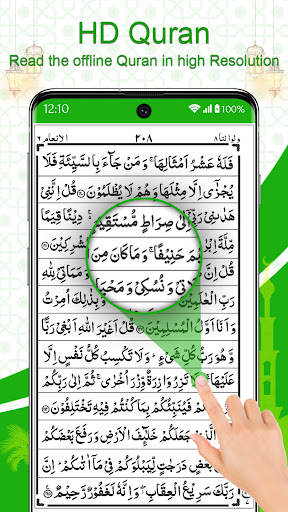 HD Quran
Read the offline Quran in high Resolution
12:10 100%
ولواننا۸ ۲۰۸ الانعام٦
فَلَهٗ عَشْرُ اَمْثَالِهَا ۚ وَ مَنْ جَآءَ بِالسَّيِّئَةِ فَلَا
يُجْزٰۤى اِلَّا مِثْلَهَا وَ هُمْ لَا يُظْلَمُوْنَ قُلْ اِنَّنِيْ
اِلٰى صِرَاطٍ مُّسْتَقِيْمٍ دِيْنًا قِيَمًا
مِّلَّةَ حَنِيْفًا ۚ وَ مَا كَانَ مِنَ
قُلْ اِنَّ يْ وَ نُسُكِيْ وَ مَحْيَا وَ مَمَاتِيْ لِلّٰهِ
رَبِّ الْعٰلَمِيْنَ وَ بِذٰلِكَ اُمِرْتُ
وَ اَنَا اَوَّلُ الْمُسْلِمِيْنَ قُلْ اَغَيْرَ اللّٰهِ اَبْغِيْ رَبًّا
وَّ هُوَ رَبُّ كُلِّ شَيْءٍ ؕ وَ لَا تَكْسِبُ كُلُّ نَفْسٍ اِلَّا
عَلَيْهَا ۚ وَ لَا تَزِرُ وَازِرَةٌ وِّزْرَ اُخْرٰى ۚ ثُمَّ اِلٰى رَبِّكُمْ
فَيُنَبِّئُكُمْ بِمَا كُنْتُمْ فِيْهِ تَخْتَلِفُوْنَ
جَعَلَكُمْ خَلٰٓئِفَ الْاَرْضِ وَ رَفَعَ بَعْضَكُمْ
بَعْضٍ دَرَجٰتٍ لِّيَبْلُوَكُمْ فِيْ مَاۤ اٰتٰىكُمْ ؕ اِنَّ
رَبَّكَ سَرِيْعُ الْعِقَابِ ۖ وَ اِنَّهٗ لَغَفُوْرٌ رَّحِيْمٌ